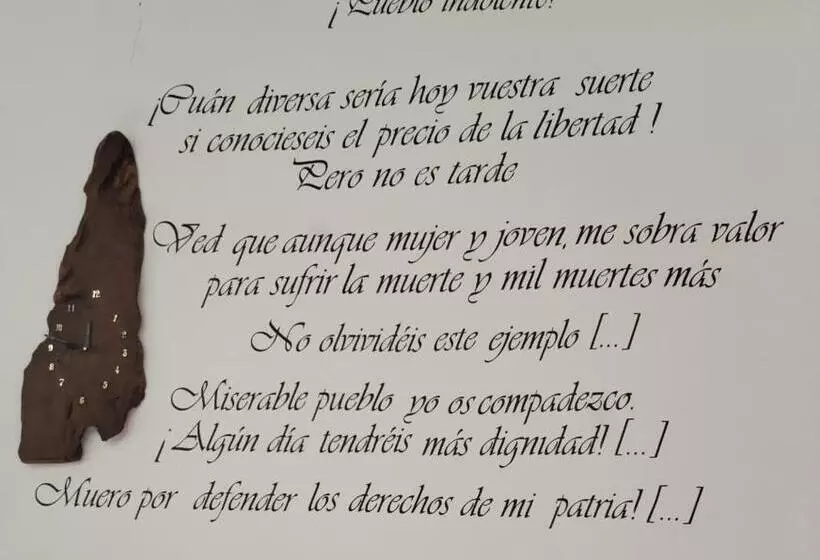 ¡Pueblo indolente!
¡Cuán diversa sería hoy vuestra suerte
si conocieseis el precio de la libertad !
Pero no es tarde
Ved que aunque mujer y joven, me sobra valor
para sufrir la muerte y mil muertes más
No olvividéis este ejemplo [...]
Miserable pueblo yo os compadezco.
¡Algún día tendréis más dignidad! [...]
Muero por defender los derechos de mi patria! [...]
12
11
1
10
2
9
3
8
4
7
5
6